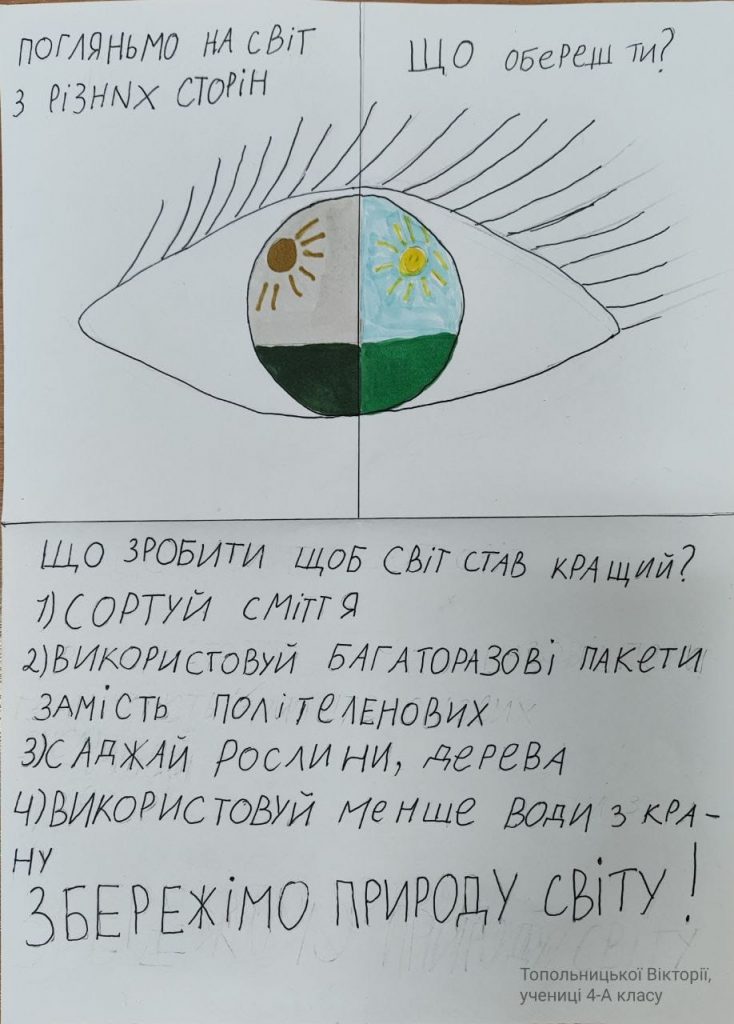 ПОГЛЯНЬМО НА СВІТ
З РІЗНИХ СТОРІН
ЩО ОБЕРЕШ ТИ?
ЩО ЗРОБИТИ ЩОБ СВІТ СТАВ КРАЩИЙ?
1) СОРТУЙ СМІТТЯ
2) ВИКОРИСТОВУЙ БАГАТОРАЗОВІ ПАКЕТИ
ЗАМІСТЬ ПОЛІТЕЛЕНОВИХ
3) САДЖАЙ РОСЛИНИ, ДЕРЕВА
4) ВИКОРИСТОВУЙ МЕНШЕ ВОДИ З КРА-
НУ
ЗБЕРЕЖІМО ПРИРОДУ СВІТУ!
Топольницької Вікторії,
учениці 4-А класу